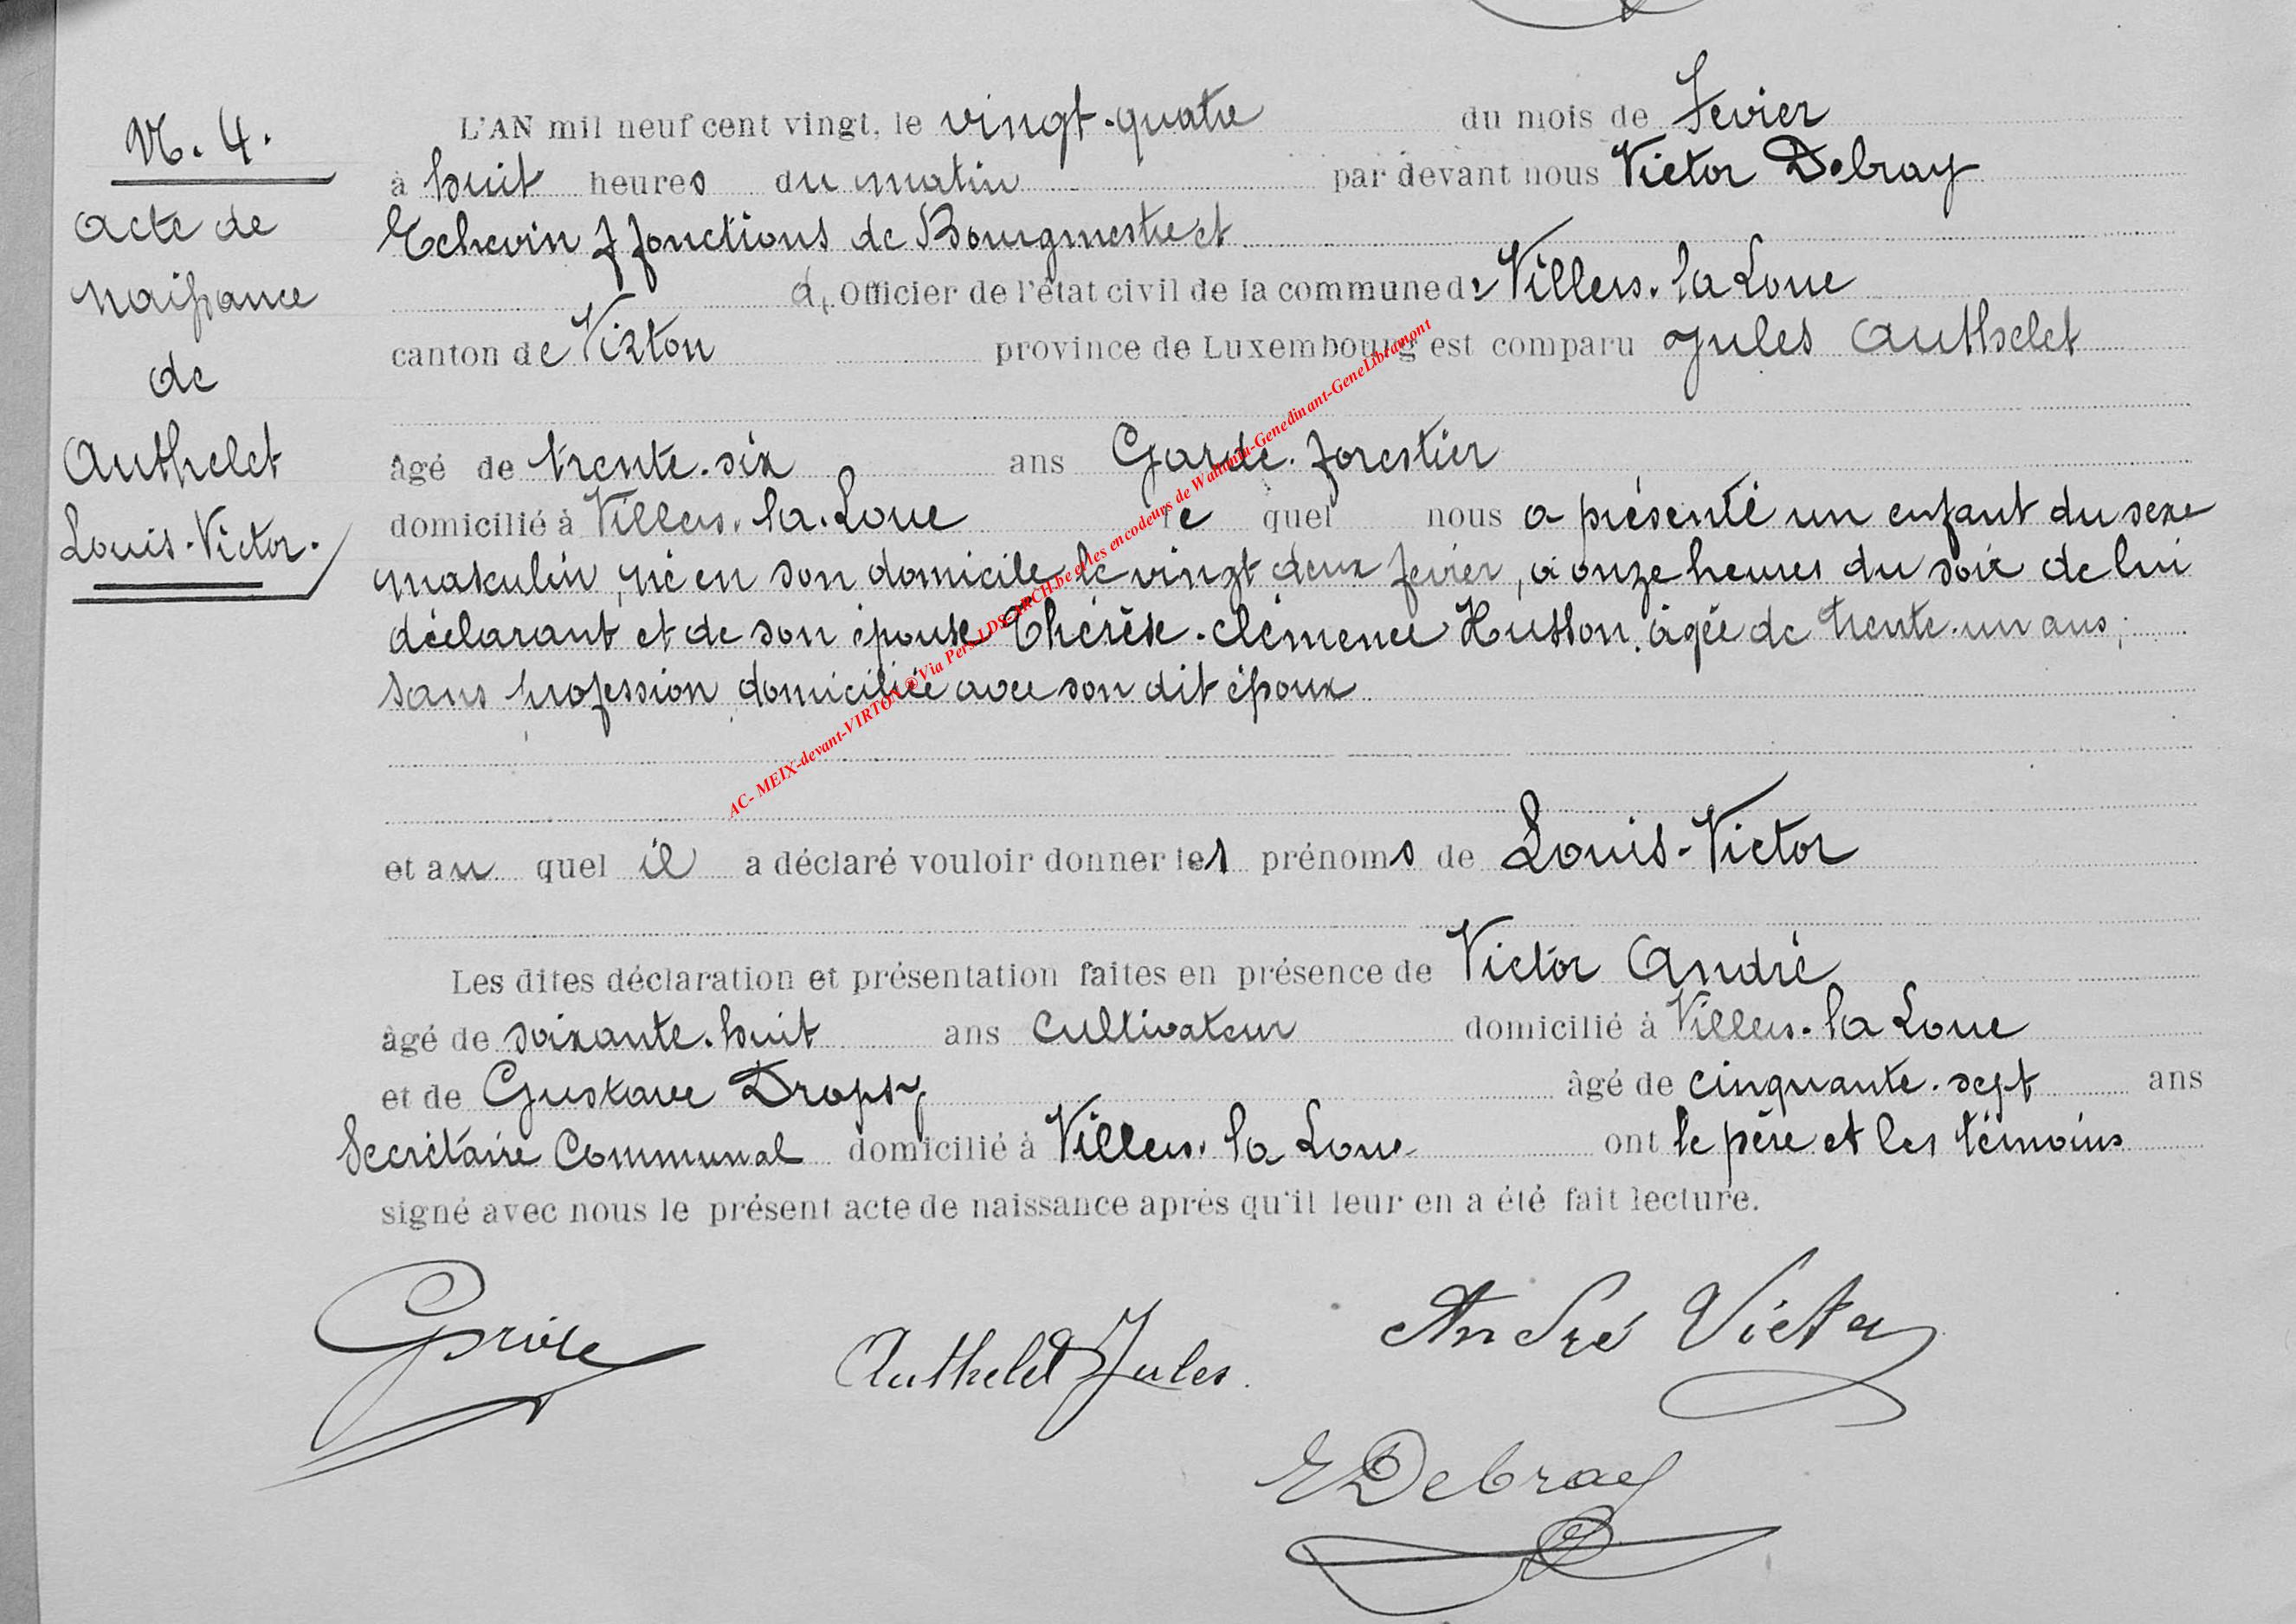 N. 4.
Acte de
Naissance
de
Authelet
Louis-Victor.
L'AN mil neuf cent vingt, le vingt-quatre du mois de Fevier
à huit heures du matin par devant nous Victor Debray
Echevin f fonctions de Bourgmestre et
Officier de l'état civil de la commune de Villers-la Loue
canton de Virton province de Luxembourg est comparu Jules Authelet
âgé de trente-six ans Garde-forestier
domicilié à Villers-la-Loue le quel nous a présenté un enfant du sexe
masculin, né en son domicile le vingt deux fevier, à onze heures du soir de lui
déclarant et de son épouse Thérèse-Clémence Husson, âgée de trente-un ans,
sans profession domiciliée avec son dit époux
et au quel il a déclaré vouloir donner les prénoms de Louis-Victor
Les dites déclaration et présentation faites en présence de Victor André
âgé de soixante-huit ans cultivateur domicilié à Villers-la Loue
et de Gustave Dropsy âgé de cinquante-sept ans
Secrétaire Communal domicilié à Villers-la Loue ont le père et les témoins
signé avec nous le présent acte de naissance après qu'il leur en a été fait lecture.
Authelet Jules.
André Victor
Debray
AC- MEIX-devant-VIRTON @ Via Pers-LDS-ARCH.be et les encodeurs de Wallonia-Genedinant-GeneLibramont